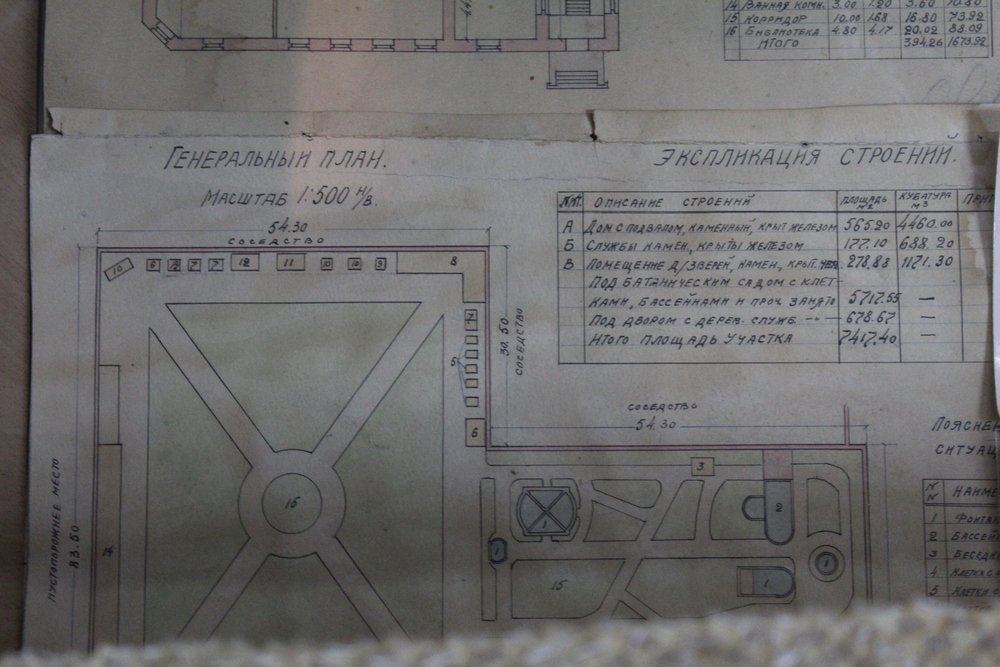 14 Ванная комн. 3.00 1.20 3.60
15 Корридор 10.00 1.68 16.80 73.92
16 Библиотека 4.80 4.17 20.02 88.09
Итого 394.26 1673.92
ГЕНЕРАЛЬНЫЙ ПЛАН.
МАСШТАБ 1:500 Н/В.
54.30
СОСЕДСТВО
ЭКСПЛИКАЦИЯ СТРОЕНИЙ.
ОПИСАНИЕ СТРОЕНИЙ ПЛОЩАДЬ М2 КУБАТУРА М3
А ДОМ С ПОДВАЛОМ, КАМЕННЫЙ, КРЫТ ЖЕЛЕЗОМ 565.20 4460.00
Б СЛУЖБЫ КАМЕН., КРЫТЫ ЖЕЛЕЗОМ 177.10 688.20
В ПОМЕЩЕНИЕ Д/ЗВЕРЕЙ, КАМЕН., КРЫТ. 278.88 1171.30
ПОД БАТАНИЧЕСКИМ САДОМ С КЛЕТ-
КАМИ, БАССЕЙНАМИ И ПРОЧ. ЗАНЯТО 5717.55 —
ПОД ДВОРОМ С ДЕРЕВ. СЛУЖБ 678.67 —
ИТОГО ПЛОЩАДЬ УЧАСТКА 7417.40 —
10 12 11 10 10 9 8
7
5
6
30.50
СОСЕДСТВО
СОСЕДСТВО
54.30
3
2
1
1
1
1
15
16
14
ПУСТОПОРОЖНЕЕ МЕСТО
83.50
ПОЯСНЕ
СИТУАЦ
N N НАИМЕ
1 ФОНТАН
2 БАССЕЙ
3 БЕСЕДК
4 КЛЕТКИ С
5 КЛЕТКИ